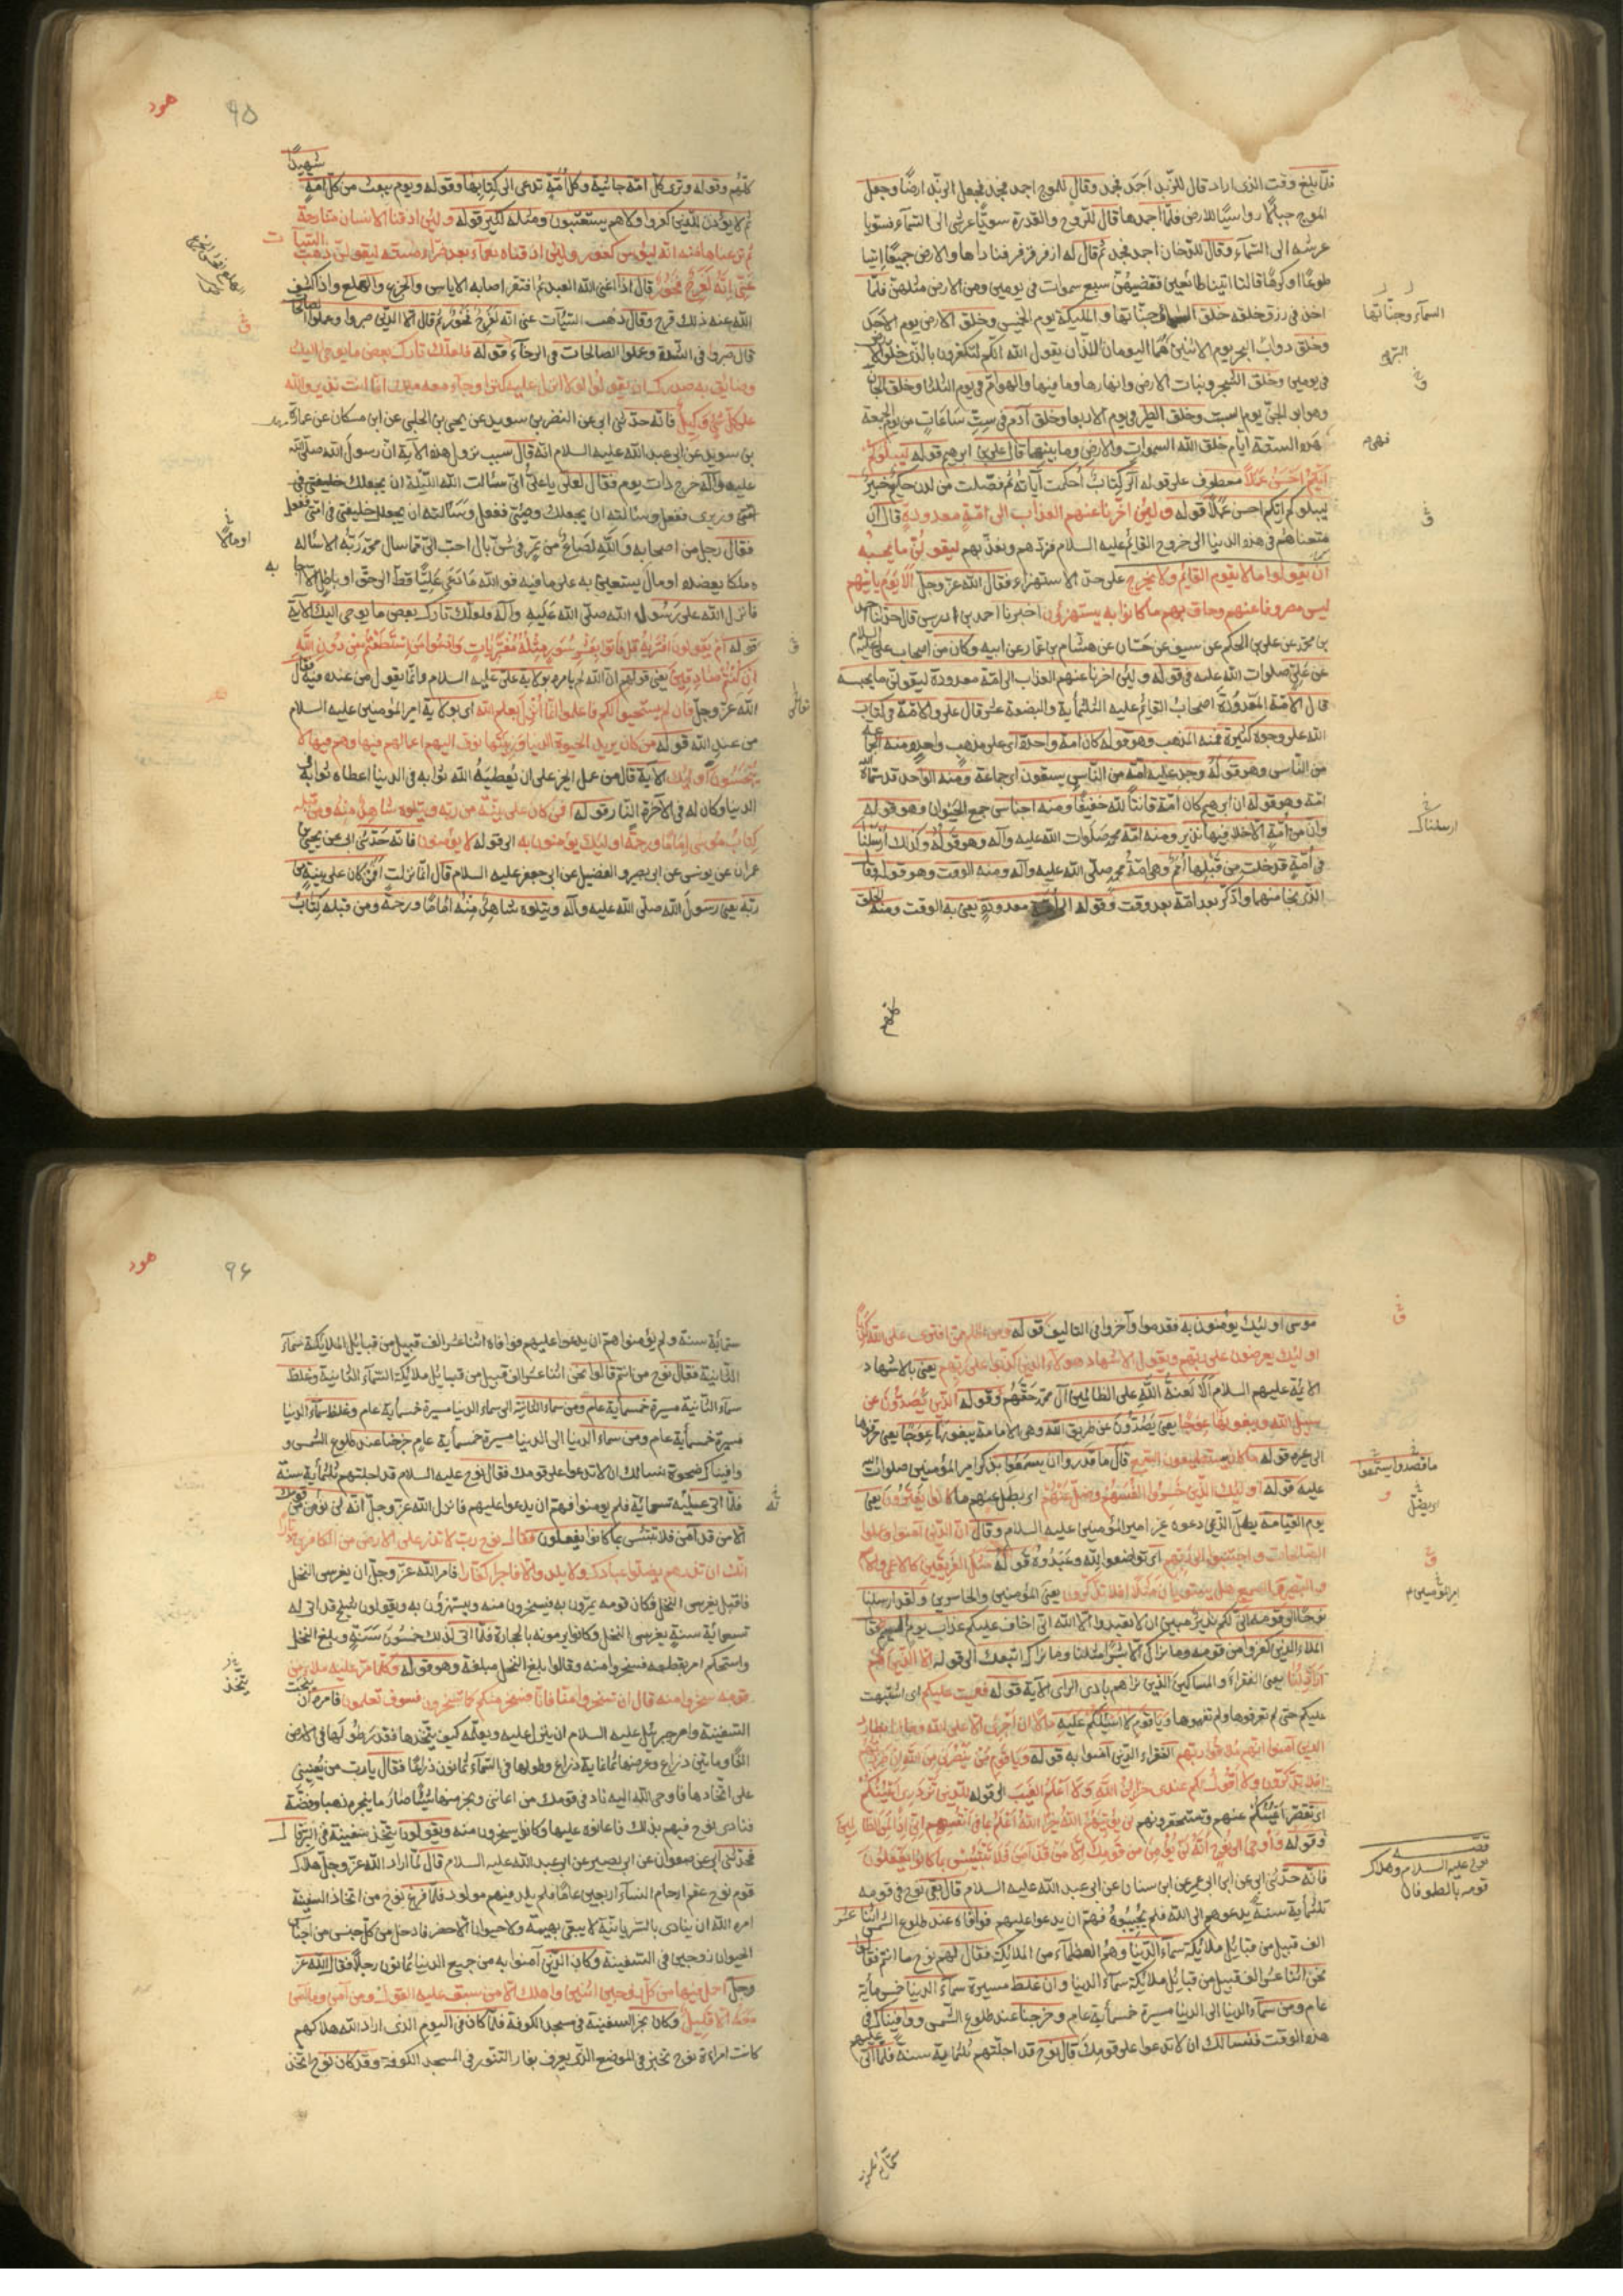 فلما بلغ وقت الذى اراد قال للزبد اجمد فجمد وقال للموج اجمد فجمد فجعل الزبد ارضا وجعل
الموج جبالا رواسيا للارض فلما اجمدها قال للروح والقدرة سويا عرشى الى السمآء فسويا
عرشه الى السمآء وقال للدخان اجمد فجمد ثم قال له ازفر فزفر فناداها والارض جميعا ائتيا
طوعا او كرها قالتا اتينا طائعين فقضيهن سبع سموات فى يومين ومن الارض مثلهن فلما
اخذ فى رزق خلقه خلق السمآء وجناتها والمليكة يوم الخميس وخلق الارض يوم الاحد
وخلق دواب البحر يوم الاثنين وهما اليومان اللذان يقول الله انكم لتكفرون بالذى خلق الارض
فى يومين وخلق الشجر ونبات الارض وانهارها وما فيها والهوام فى يوم الثلثا وخلق الجان
وهو ابو الجن يوم السبت وخلق الطير فى يوم الاربعا وخلق آدم فى ست ساعات من يوم الجمعة
هذه الستة ايام خلق الله السموات والارض وما بينهما قال على بن ابرهيم قوله ليبلوكم
ايكم احسن عملا معطوف على قوله الر كتاب احكمت آياته ثم فصلت من لدن حكيم خبير
ليبلوكم ايكم احسن عملا قوله ولئن اخرنا عنهم العذاب الى امة معدودة قال ان
متعناهم فى هذه الدنيا الى خروج القائم عليه السلام فنردهم ونعذبهم ليقولن ما يحبسه
ان يقولوا ما لا يقوم القائم ولا يخرج على حد الاستهزاء فقال الله عز وجل الا يوم ياتيهم
ليس مصروفا عنهم وحاق بهم ما كانوا به يستهزؤن اخبرنا احمد بن ادريس قال حدثنا احمد
بن محمد عن على بن الحكم عن سيف عن حسان عن هشام بن عمار عن ابيه وكان من اصحاب على عليه السلام
عن على صلوات الله عليه فى قوله ولئن اخرنا عنهم العذاب الى امة معدودة ليقولن ما يحبسه
قال الامة المعدودة اصحاب القائم عليه الثلثمأية والبضعة عشر قال على والامة فى كتاب
الله على وجوه كثيرة فمنه المذهب وهو قوله كان امة واحدة اى على مذهب واحد ومنه الجماعة
من الناس وهو قوله وجد عليه امة من الناس يسقون اى جماعة ومنه الواحد قد سماه الله
امة وهو قوله ان ابرهيم كان امة قانتا لله حنيفا ومنه اجناس جمع الحيوان وهو قوله
وان من امة الا خلا فيها نذير ومنه امة محمد صلوات الله عليه وآله وهو قوله وكذلك ارسلنا
فى امة قد خلت من قبلها امم وهى امة محمد صلى الله عليه وآله ومنه الوقت وهو قوله وقال
الذى نجا منهما واذكر بعد امة بعد وقت وقوله الى امة معدودة يعنى به الوقت ومنه الخلق
كلهم
السمآء وجناتها
ارسلناك
هود
٩٥
شهيدا
كلهم وقوله وترى كل امة جاثية وكل امة تدعى الى كتابها وقوله ويوم نبعث من كل امة
ثم لا يؤذن للذين كفروا ولا هم يستعتبون ومثله كثير قوله ولئن اذقنا الانسان منا رحمة
ثم نزعناها منه انه ليؤس كفور ولئن اذقناه نعمآء بعد ضرآء مسته ليقولن ذهب السيئات
عنى انه لفرح فخور قال اذا اغنى الله العبد ثم افتقر اصابه الاياس والجزع والهلع واذا كشف
الله عنه ذلك فرح وقال ذهب السيئات عنى انه لفرح فخور ثم قال الا الذين صبروا وعملوا الصالحات
قال صبروا فى الشدة وعملوا الصالحات فى الرخآء قوله فلعلك تارك بعض ما يوحى اليك
وضائق به صدرك ان يقولوا لولا انزل عليه كنز او جاء معه ملك انما انت نذير والله
على كل شئ وكيل فانه حدثنى ابى عن النضر بن سويد عن يحيى بن الحلبى عن ابن مسكان عن عمارة
بن سويد عن ابى عبد الله عليه السلام انه قال سبب نزول هذه الآية ان رسول الله صلى الله
عليه وآله خرج ذات يوم فقال لعلى يا على انى سئالت الله الليلة ان يجعلك خليفتى فى
امتى وزيرى ففعل وسئالته ان يجعلك وصيى ففعل وسئالته ان يجعلك خليفتى فى امتى ففعل
فقال رجل من اصحابه والله لصاع من تمر فى شن بال احب الى مما سال محمد ربه الا سئاله
ملكا يعضده او مالا يستعين به على ما فيه فو الله ما دعى عليا قط الى حق او باطل الا اجابه
فانزل الله على رسول الله صلى الله عليه وآله فلعلك تارك بعض ما يوحى اليك الآية
قوله ام يقولون افتريه قل فاتوا بعشر سور مثله مفتريات وادعوا من استطعتم من دون الله
ان كنتم صادقين يعنى قولهم ان الله لم يامره بولاية على عليه السلام وانما يقول من عنده فيه فقال
الله عز وجل فان لم يستجيبوا لكم فاعلموا انما انزل بعلم الله اى بولاية امير المؤمنين عليه السلام
من عند الله قوله من كان يريد الحيوة الدنيا وزينتها نوف اليهم اعمالهم فيها وهم فيها لا
يبخسون اولئك الآية قال من عمل الخير على ان يعطيه الله ثوابه فى الدنيا اعطاه ثوابه فى
الدنيا وكان له فى الآخرة النار قوله افمن كان على بينة من ربه ويتلوه شاهد منه ومن قبله
كتاب موسى اماما ورحمة اولئك يؤمنون به الى قوله لا يؤمنون فانه حدثنى ابى عن يحيى بن
عمران عن يونس عن ابى بصير والفضيل عن ابى جعفر عليه السلام قال انما نزلت افمن كان على بينة من
ربه يعنى رسول الله صلى الله عليه وآله ويتلوه شاهد منه اماما ورحمة ومن قبله كتاب
او مالا
موسى اولئك يؤمنون به فقدموا وآخروا فى التاليف قوله ومن اظلم ممن افترى على الله كذبا
اولئك يعرضون على ربهم ويقول الاشهاد هؤلاء الذين كذبوا على ربهم يعنى بالاشهاد
الائمة عليهم السلام الا لعنة الله على الظالمين آل محمد حقهم وقوله الذين يصدون عن
سبيل الله ويبغونها عوجا يعنى يصدون عن طريق الله وهى الامامة يبغونها عوجا يعنى حرفوها
الى غيره قوله ما كانوا يستطيعون السمع قال ما قدروا ان يسمعوا بذكر امير المؤمنين صلوات الله
عليه قوله اولئك الذين خسروا انفسهم وضل عنهم اى بطل عنهم ما كانوا يفترون يعنى
يوم القيامة بطل الذين دعوه غير امير المؤمنين عليه السلام وقال ان الذين آمنوا وعملوا
الصالحات واخبتوا الى ربهم اى تواضعوا لله وعبدوه قوله مثل الفريقين كالاعمى والاصم
والبصير والسميع هل يستويان مثلا افلا تذكرون يعنى المؤمنين والخاسرين ولقد ارسلنا
نوحا الى قومه انى لكم نذير مبين ان لا تعبدوا الا الله انى اخاف عليكم عذاب يوم اليم فقال
الملاء الذين كفروا من قومه وما نراك الا بشرا مثلنا وما نراك اتبعك الى قوله الا الذين هم
اراذلنا يعنى الفقراء والمساكين الذين نراهم بادى الراى الآية قوله فعميت عليكم اى اشتبهت
عليكم حتى لم تعرفوها ولم تفهموها ويا قوم لا اسئلكم عليه مالا ان اجرى الا على الله وما انا بطارد
الذين آمنوا انهم ملاقوا ربهم الفقراء الذين آمنوا به قوله ويا قوم من ينصرنى من الله ان طردتهم
افلا تذكرون ولا اقول لكم عندى خزائن الله ولا اعلم الغيب الى قوله للذين تزدرى اعينكم
اى تقصر اعينكم عنهم وتستحقرونهم لن يؤتيهم الله خيرا الله اعلم بما فى انفسهم انى اذا لمن الظالمين
وقوله واوحى الى نوح انه لن يؤمن من قومك الا من قد آمن فلا تبتئس بما كانوا يفعلون
فانه حدثنى ابى عن ابن ابى عمير عن ابن سنان عن ابى عبد الله عليه السلام قال بقى نوح فى قومه
ثلثمأية سنة يدعوهم الى الله فلم يجيبوه فهم ان يدعوا عليهم فوافاه عند طلوع الشمس اثنا عشر
الف قبيل من قبائل ملائكة سمآء الدنيا وهم العظمآء من الملائكة فقال لهم نوح ما انتم فقالوا
نحن اثنا عشر الف قبيل من قبائل ملائكة سمآء الدنيا وان غلظ مسيرة سمآء الدنيا خمس مأية
عام ومن سمآء الدنيا الى الدنيا مسيرة خمسمأية عام وخرجنا عند طلوع الشمس ووافيناك فى
هذه الوقت فنسالك ان لا تدعوا على قومك قال نوح قد اجلتهم ثلثمأية سنة فلما اتى عليهم
قصة
نوح عليه السلام وهلاك
قومه بالطوفان
هود
٩٦
ستمأية سنة ولم يؤمنوا هم ان يدعوا عليهم فوافاه اثنا عشر الف قبيل من قبائل الملائكة سمآء
الثانية فقال نوح من انتم قالوا نحن اثنا عشر الف قبيل من قبايل ملائكة السمآء الثانية وغلظ
سمآء الثانية مسيرة خمسمأية عام ومن سماء الثانية الى سماء الدنيا مسيرة خمسمأية عام وغلظ سمآء الدنيا
مسيرة خمسمأية عام ومن سماء الدنيا الى الدنيا مسيرة خمسمأية عام خرجنا عند طلوع الشمس و
وافيناك ضحوة نسالك ان لا تدعوا على قومك فقال نوح عليه السلام قد اجلتهم ثلثمأية سنة
فلما اتى عليه تسعمأية فلم يومنوا فهم ان يدعوا عليهم فانزل الله عز وجل انه لن يؤمن من قومك
الا من قد آمن فلا تبتئس بما كانوا يفعلون فقال نوح رب لا تذر على الارض من الكافرين ديارا
انك ان تذرهم يضلوا عبادك ولا يلدوا الا فاجرا كفارا فامر الله عز وجل ان يغرس النخل
فاقبل يغرس النخل فكان قومه يمرون به فيسخرون منه ويستهزؤن به ويقولون شيخ قد اتى له
تسعمأية سنة يغرس النخل وكانوا يرمونه بالحجارة فلما اتى لذلك خمسون سنة وبلغ النخل
واستحكم امر بقطعه فسخروا منه وقالوا بلغ النخل مبلغه وهو قوله وكلما مر عليه ملاء من
قومه سخروا منه قال ان تسخروا منا فانا نسخر منكم كما تسخرون فسوف تعلمون فامره ان ينحت
السفينة وامر جبرئيل عليه السلام ان ينزل عليه ويعلمه كيف يتخذها فقدر طولها فى الارض
الفا ومأتين ذراع وعرضها ثمانمأية ذراع وطولها فى السمآء ثمانون ذراعا فقال يا رب من يعيننى
على اتخاذها فاوحى الله اليه ناد فى قومك من اعاننى ونجر منها شيئا صار ما ينجره ذهبا وفضة
فنادى نوح فيهم بذلك فاعانوه عليها وكانوا يسخرون منه ويقولون يتخذ سفينة فى البر قال
فحدثنى ابى عن صفوان عن ابى بصير عن ابى عبد الله عليه السلام قال لما اراد الله عز وجل هلاك
قوم نوح عقم ارحام النسآء اربعين عاما فلم يلد فيهم مولود فلما فرغ نوح من اتخاذ السفينة
امره الله ان ينادى بالسريانية لا يبقى بهيمة ولا حيوان الا حضر فادخل من كل جنس من اجناس
الحيوان زوجين فى السفينة وكان الذين آمنوا به من جميع الدنيا ثمانون رجلا فقال الله عز
وجل احمل فيها من كل زوجين اثنين واهلك الا من سبق عليه القول ومن آمن وما آمن
معه الا قليل وكان نجر السفينة فى مسجد الكوفة فلما كان فى اليوم الذى اراد الله هلاكهم
كانت امراءة نوح تخبز فى الموضع الذى يعرف بفار التنور فى المسجد الكوفة وقد كان نوح اتخذ
يتخذ